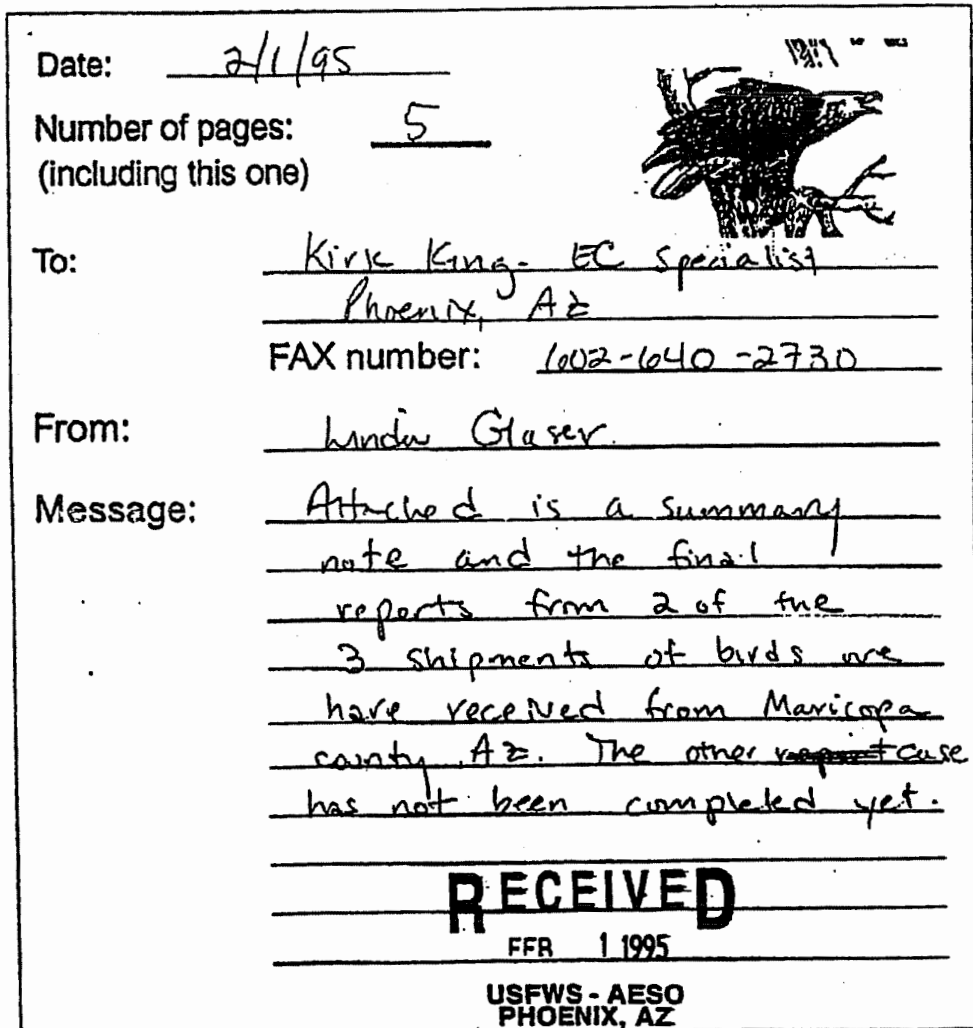 Date: 2/1/95
Number of pages: 5
(including this one)
To: Kirk King - EC Specialist
Phoenix, AZ
FAX number: 602-640-2730
From: Linda Glaser
Message: Attached is a summary
note and the final
reports from 2 of the
3 shipments of birds we
have received from Maricopa
county AZ. The other case
has not been completed yet.
RECEIVED
FEB 1 1995
USFWS - AESO
PHOENIX, AZ